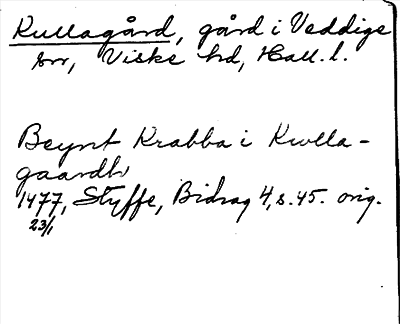 Kullagård, gård i Veddige
sn, Viske hd, Hall. l.
Beynt Krabba i Kwlla-
gaardh
1477, Styffe, Bidrag 4, s. 45. orig.
23/1